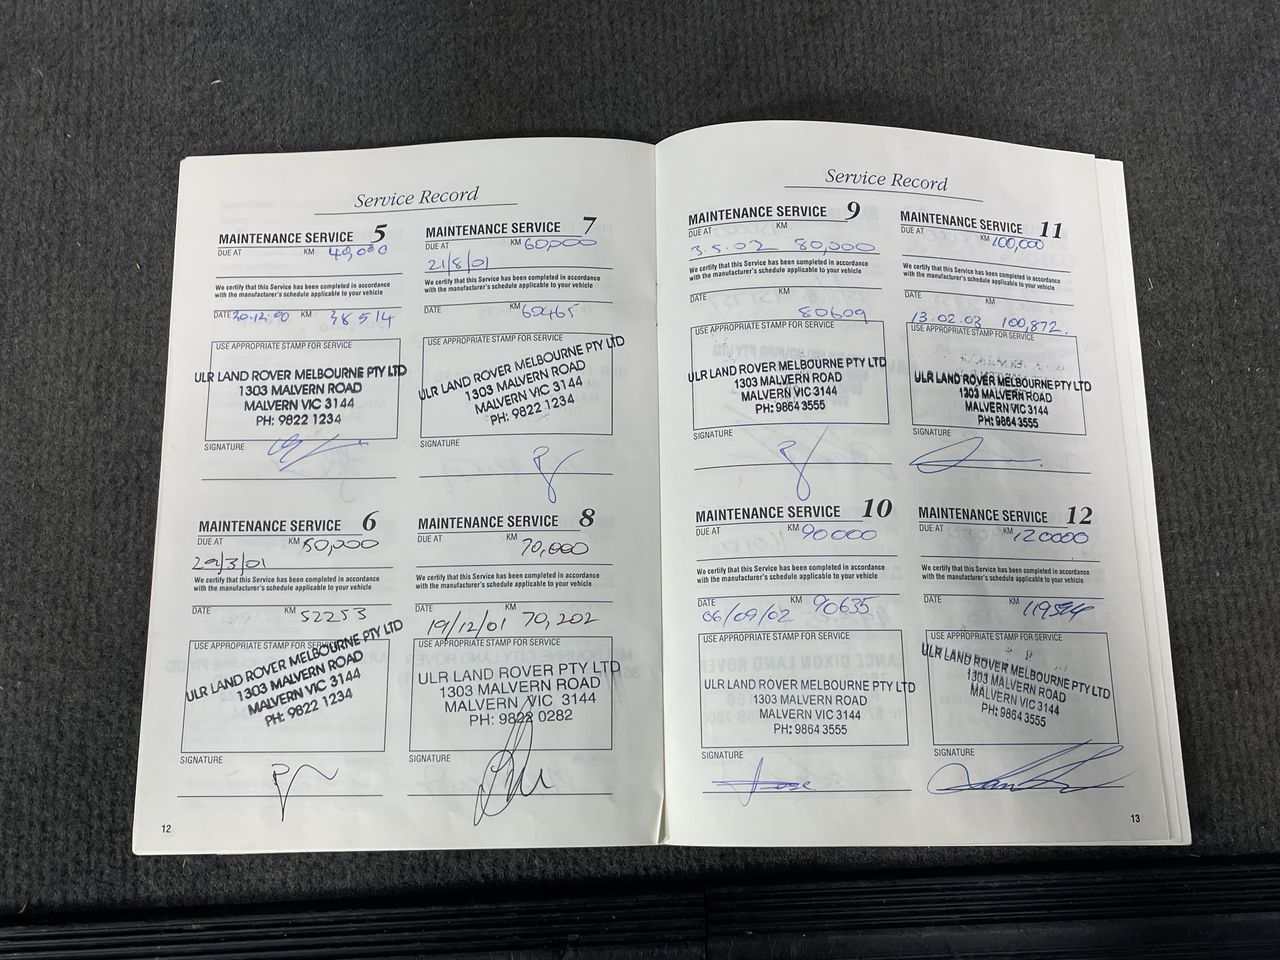 Service Record
MAINTENANCE SERVICE 5
DUE AT KM 40,000
We certify that this Service has been completed in accordance
with the manufacturer's schedule applicable to your vehicle
DATE 20.12.90 KM 38514
USE APPROPRIATE STAMP FOR SERVICE
ULR LAND ROVER MELBOURNE PTY LTD
1303 MALVERN ROAD
MALVERN VIC 3144
PH: 9822 1234
SIGNATURE
MAINTENANCE SERVICE 6
DUE AT KM 50,000
29/3/01
We certify that this Service has been completed in accordance
with the manufacturer's schedule applicable to your vehicle
DATE KM 52253
USE APPROPRIATE STAMP FOR SERVICE
ULR LAND ROVER MELBOURNE PTY LTD
1303 MALVERN ROAD
MALVERN VIC 3144
PH: 9822 1234
SIGNATURE
12
MAINTENANCE SERVICE 7
DUE AT KM 60,000
21/8/01
We certify that this Service has been completed in accordance
with the manufacturer's schedule applicable to your vehicle
DATE KM 60465
USE APPROPRIATE STAMP FOR SERVICE
ULR LAND ROVER MELBOURNE PTY LTD
1303 MALVERN ROAD
MALVERN VIC 3144
PH: 9822 1234
SIGNATURE
MAINTENANCE SERVICE 8
DUE AT KM 70,000
We certify that this Service has been completed in accordance
with the manufacturer's schedule applicable to your vehicle
DATE KM
19/12/01 70,202
USE APPROPRIATE STAMP FOR SERVICE
MELBOURNE CITY LAND ROVER
ULR LAND ROVER PTY LTD
1303 MALVERN ROAD
MALVERN VIC 3144
PH: 9822 0282
SIGNATURE
Service Record
MAINTENANCE SERVICE 9
DUE AT KM
3.5.02 80,000
We certify that this Service has been completed in accordance
with the manufacturer's schedule applicable to your vehicle
DATE KM
80609
USE APPROPRIATE STAMP FOR SERVICE
ULR LAND ROVER MELBOURNE PTY LTD
1303 MALVERN ROAD
MALVERN VIC 3144
PH: 9864 3555
SIGNATURE
MAINTENANCE SERVICE 10
DUE AT KM 90000
We certify that this Service has been completed in accordance
with the manufacturer's schedule applicable to your vehicle
DATE KM
06/09/02 90635
USE APPROPRIATE STAMP FOR SERVICE
ULR LAND ROVER MELBOURNE PTY LTD
1303 MALVERN ROAD
MALVERN VIC 3144
PH: 9864 3555
SIGNATURE
MAINTENANCE SERVICE 11
DUE AT KM 100,000
We certify that this Service has been completed in accordance
with the manufacturer's schedule applicable to your vehicle
DATE KM
13.02.03 100,872.
USE APPROPRIATE STAMP FOR SERVICE
ULR LAND ROVER MELBOURNE PTY LTD
1303 MALVERN ROAD
MALVERN VIC 3144
PH: 9864 3555
SIGNATURE
MAINTENANCE SERVICE 12
DUE AT KM 120000
We certify that this Service has been completed in accordance
with the manufacturer's schedule applicable to your vehicle
DATE KM
USE APPROPRIATE STAMP FOR SERVICE
ULR LAND ROVER MELBOURNE PTY LTD
1303 MALVERN ROAD
MALVERN VIC 3144
PH: 9864 3555
SIGNATURE
13